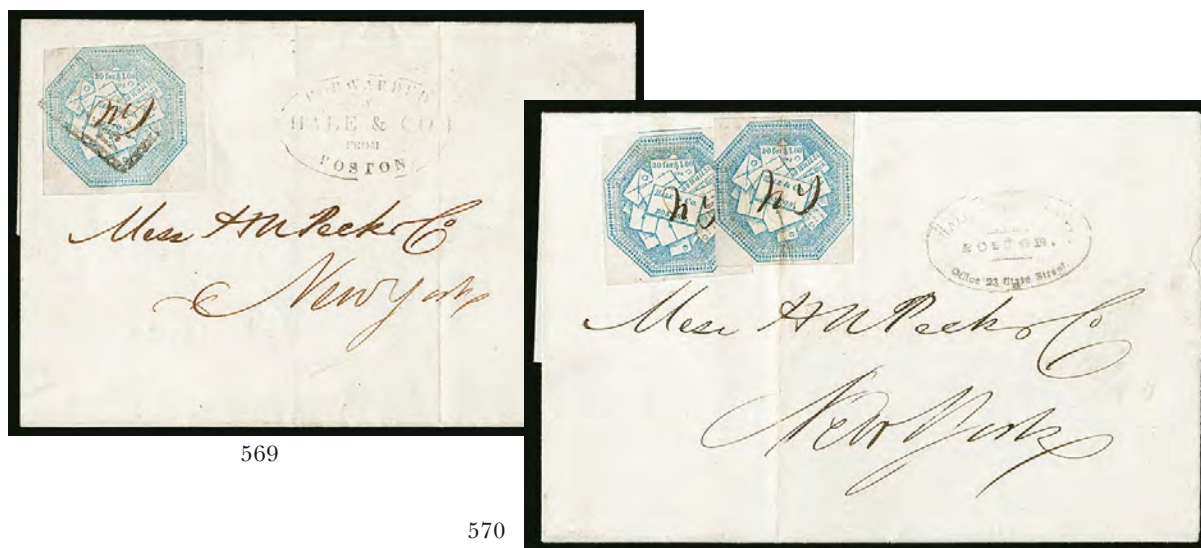 20 for $1.00
FORWARDED
BY
HALE & CO.
FROM
BOSTON
Mess H M Peck & Co
New York
569
20 for $1.00
20 for $1.00
HALE & Co.
BOSTON.
Office 23 State Street.
Mess H M Peck & Co
New York
570